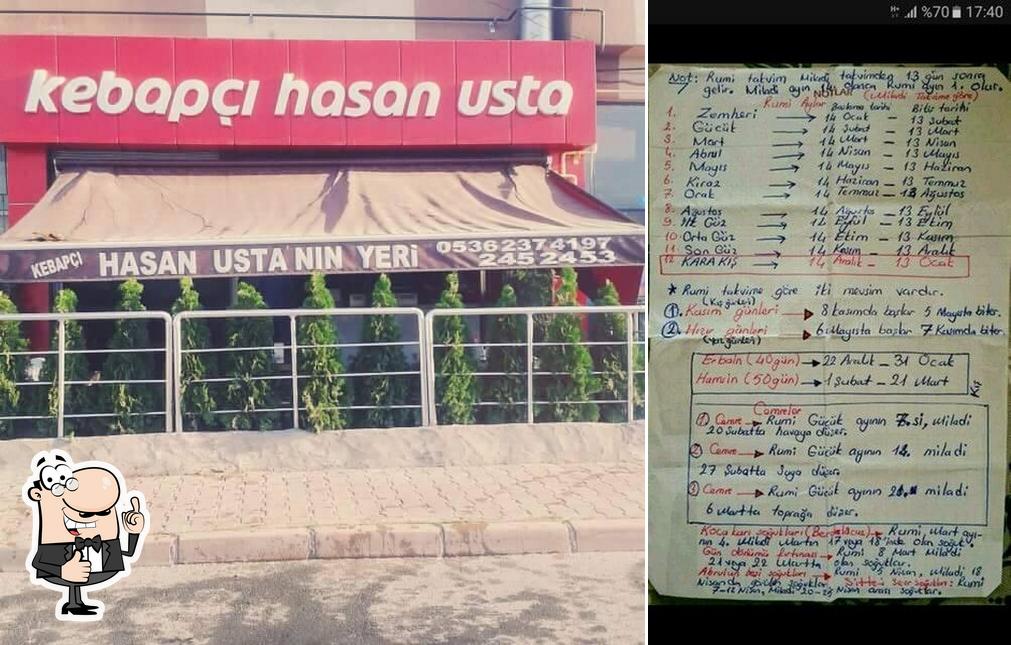 kebapçı hasan usta
KEBAPÇI HASAN USTA'NIN YERİ 05362374197
245 2453
%70 17:40
Not: Rumi takvim Miladi takvimden 13 gün sonra
gelir. Miladi ayın 14 olanca Rumi ayın 1. olur.
NOTLAR (Miladi Takvime göre)
Rumi Aylar Başlama tarihi Bitiş tarihi
1. Zemheri → 14 Ocak - 13 Şubat
2. Gücük → 14 Şubat - 13 Mart
3. Mart → 14 Mart - 13 Nisan
4. Abrul → 14 Nisan - 13 Mayıs
5. Mayıs → 14 Mayıs - 13 Haziran
6. Kiraz → 14 Haziran - 13 Temmuz
7. Orak → 14 Temmuz - 13 Ağustos
8. Ağustos → 14 Ağustos - 13 Eylül
9. İlk Güz → 14 Eylül - 13 Ekim
10. Orta Güz → 14 Ekim - 13 Kasım
11. Son Güz → 14 Kasım - 13 Aralık
12 KARA KIŞ → 14 Aralık - 13 Ocak
* Rumi takvime göre iki mevsim vardır.
(Kış günleri)
1. Kasım günleri → 8 kasımda başlar 5 Mayısta biter.
2. Hızır günleri → 6 Mayısta başlar 7 Kasımda biter.
(yaz günleri)
Erbain (40gün) → 22 Aralık - 31 Ocak
Hamsin (50gün) → 1 Şubat - 21 Mart
Kış
Cemreler
1 Cemre → Rumi Gücük ayının 7.si, Miladi
20 Şubatta havaya düşer.
2 Cemre → Rumi Gücük ayının 14. miladi
27 Şubatta Suya düşer.
3 Cemre → Rumi Gücük ayının 21. miladi
6 Martta toprağa düşer.
Koca karı soğukları → Rumi Mart ayı-
nın 4. Miladi Martın 17 veya 18 inde olan soğuk.
Gün dönümü fırtınası → Rumi 8 Mart Miladi
21 veya 22 Martta olan soğuklar.
Abrulun beşi soğukları → Rumi 5 Nisan, Miladi 18
Nisanda görülen soğuklar. Sitte-i Sevr soğukları: Rumi
7-12 Nisan, Miladi 20-25 Nisan arası soğuklar.